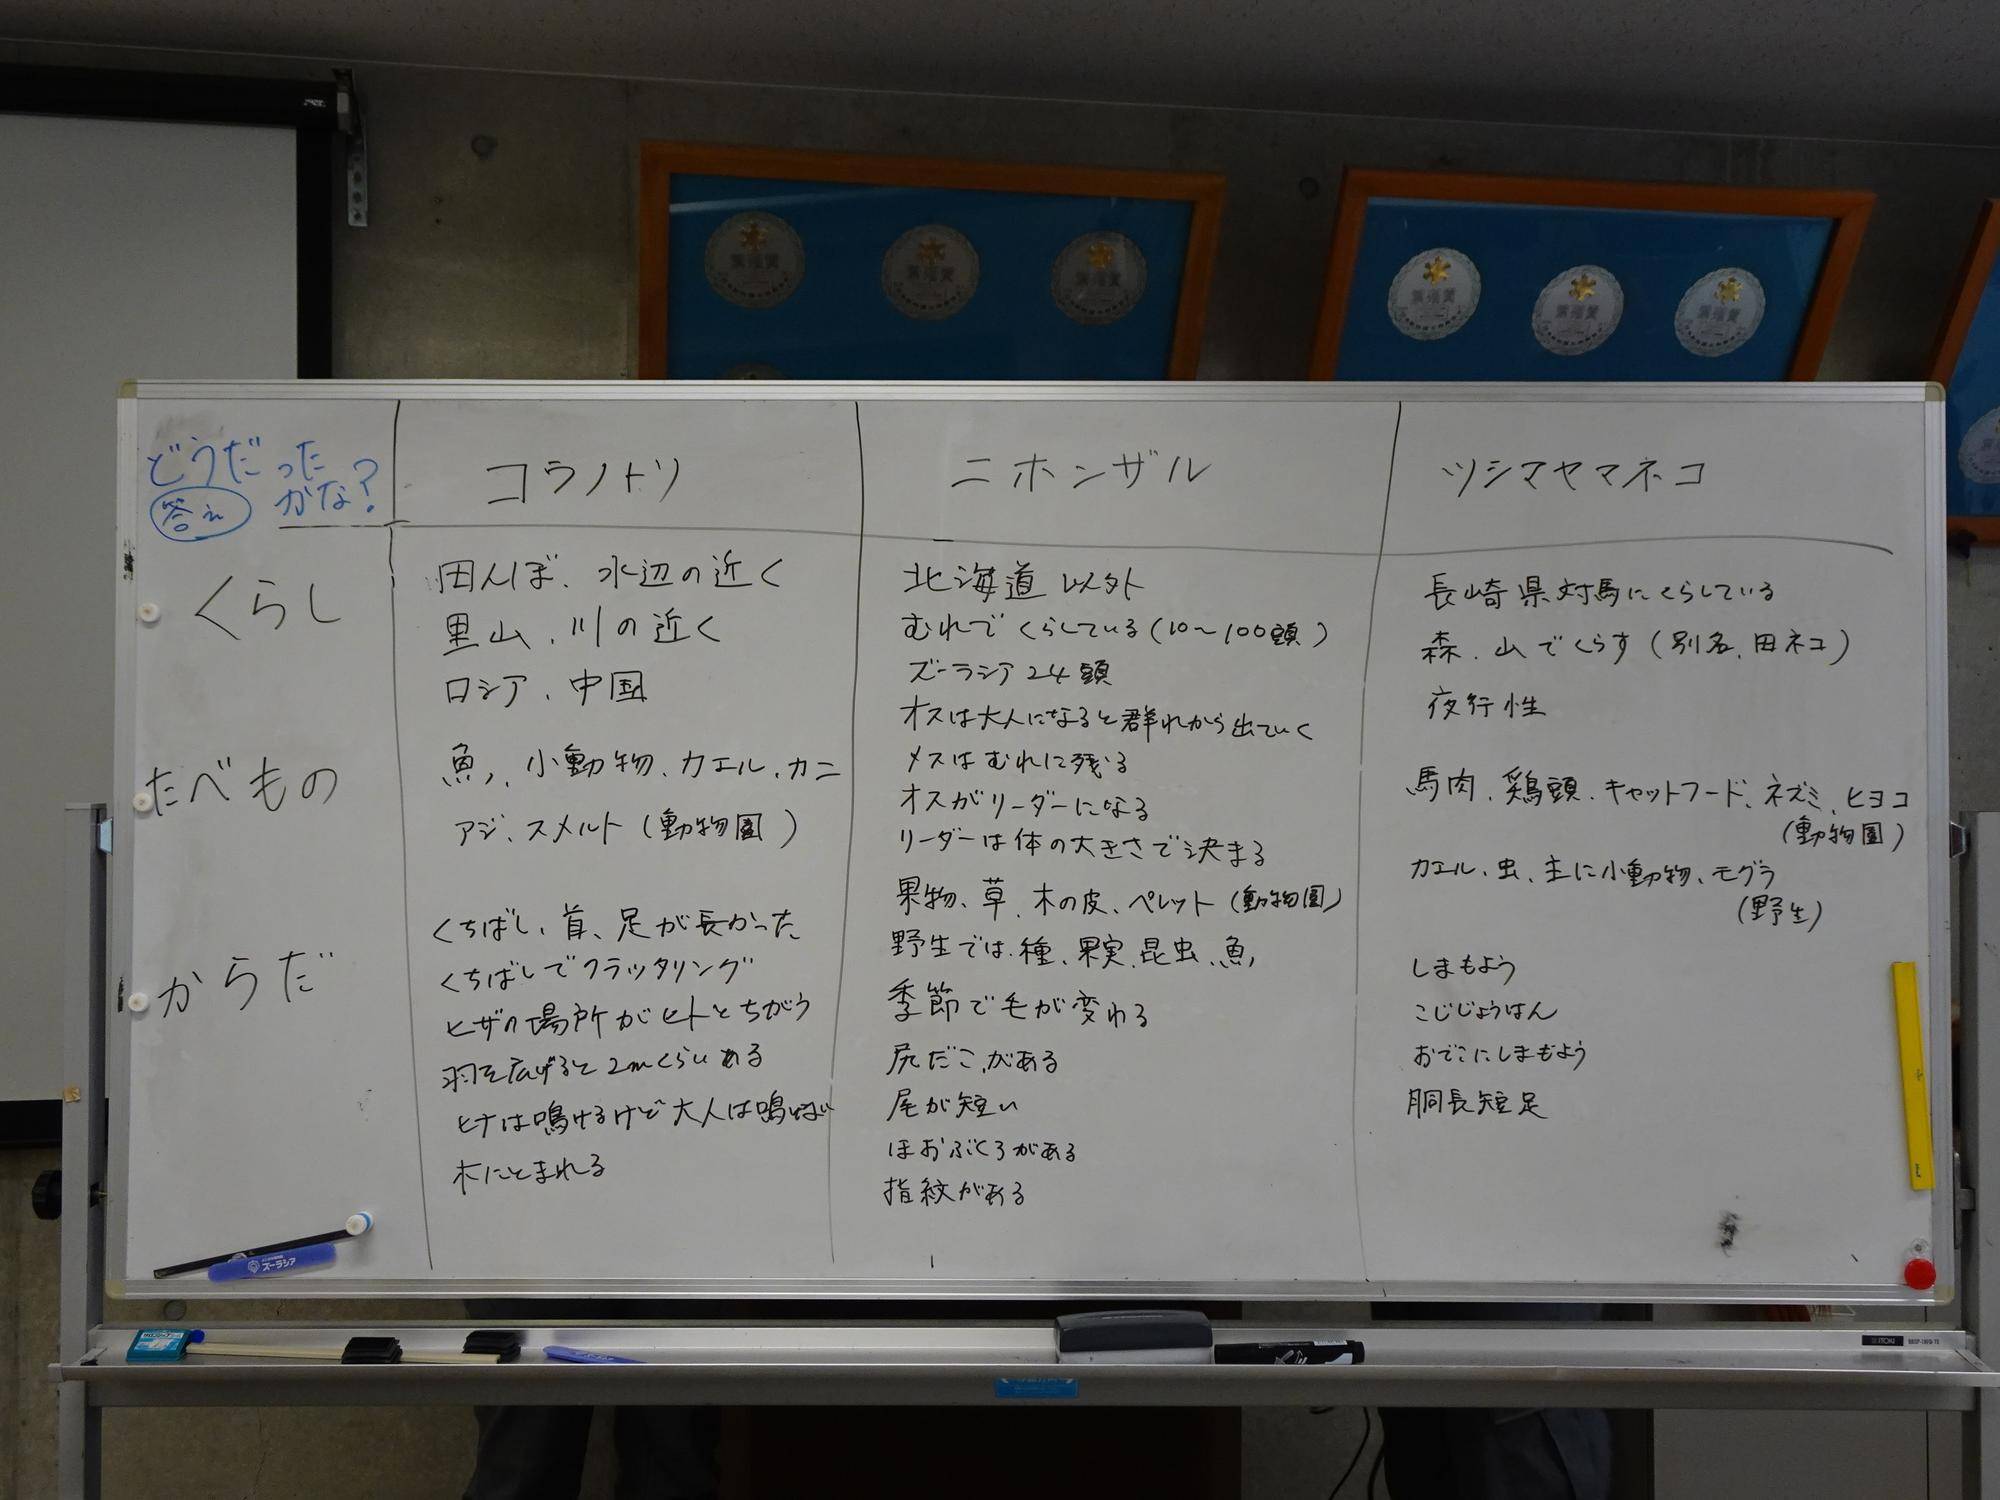 どうだった
かな?
答え
コウノトリ
ニホンザル
ツシマヤマネコ
くらし
田んぼ、水辺の近く
里山、川の近く
ロシア、中国
北海道以外
むれでくらしている(10〜100頭)
ズーラシア24頭
オスは大人になると群れから出ていく
メスはむれに残る
オスがリーダーになる
リーダーは体の大きさで決まる
長崎県対馬にくらしている
森、山でくらす(別名、田ネコ)
夜行性
たべもの
魚、小動物、カエル、カニ
アジ、スメルト(動物園)
果物、草、木の皮、ペレット(動物園)
野生では、種、果実、昆虫、魚
馬肉、鶏頭、キャットフード、ネズミ、ヒヨコ
(動物園)
カエル、虫、主に小動物、モグラ
(野生)
からだ
くちばし、首、足が長かった
くちばしでクラッタリング
ヒザの場所がヒトとちがう
羽を広げると2mくらいある
ヒナは鳴けるけど大人は鳴けない
木にとまれる
季節で毛が変わる
尻だこがある
尾が短い
ほおぶくろがある
指紋がある
しまもよう
こじじょうはん
おでこにしまもよう
胴長短足
ズーラシア
ITOKI